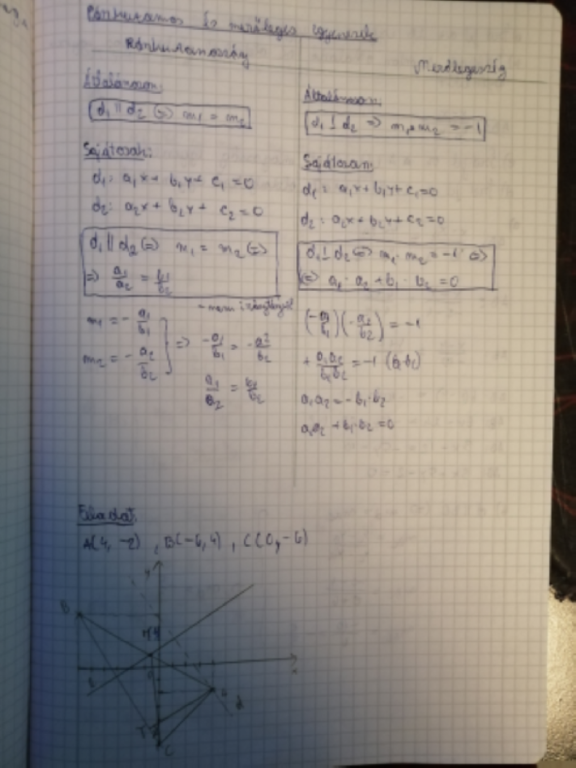 Párhuzamos és merőleges egyenesek
Párhuzamosság
Általánosan:
d₁ ∥ d₂ (=) m₁ = m₂
Sajátosan:
d₁: a₁x + b₁y + c₁ = 0
d₂: a₂x + b₂y + c₂ = 0
d₁ ∥ d₂ (=) m₁ = m₂ (=)
(=) a₁/a₂ = b₁/b₂
m₁ = - a₁/b₁
m₂ = - a₂/b₂
=> -a₁/b₁ = -a₂/b₂
a₁/a₂ = b₁/b₂
Merőlegesség
Általánosan:
d₁ ⊥ d₂ => m₁·m₂ = -1
Sajátosan
d₁: a₁x + b₁y + c₁ = 0
d₂: a₂x + b₂y + c₂ = 0
d₁ ⊥ d₂ (=) m₁ · m₂ = -1 (=)
(=) a₁ · a₂ + b₁ · b₂ = 0
(-a₁/b₁)(-a₂/b₂) = -1
+ a₁a₂/b₁b₂ = -1 (b₁b₂)
a₁a₂ = -b₁·b₂
a₁a₂ + b₁·b₂ = 0
Feladat:
A(4, -2) , B(-6, 4) , C(0, -6)
B
C
d